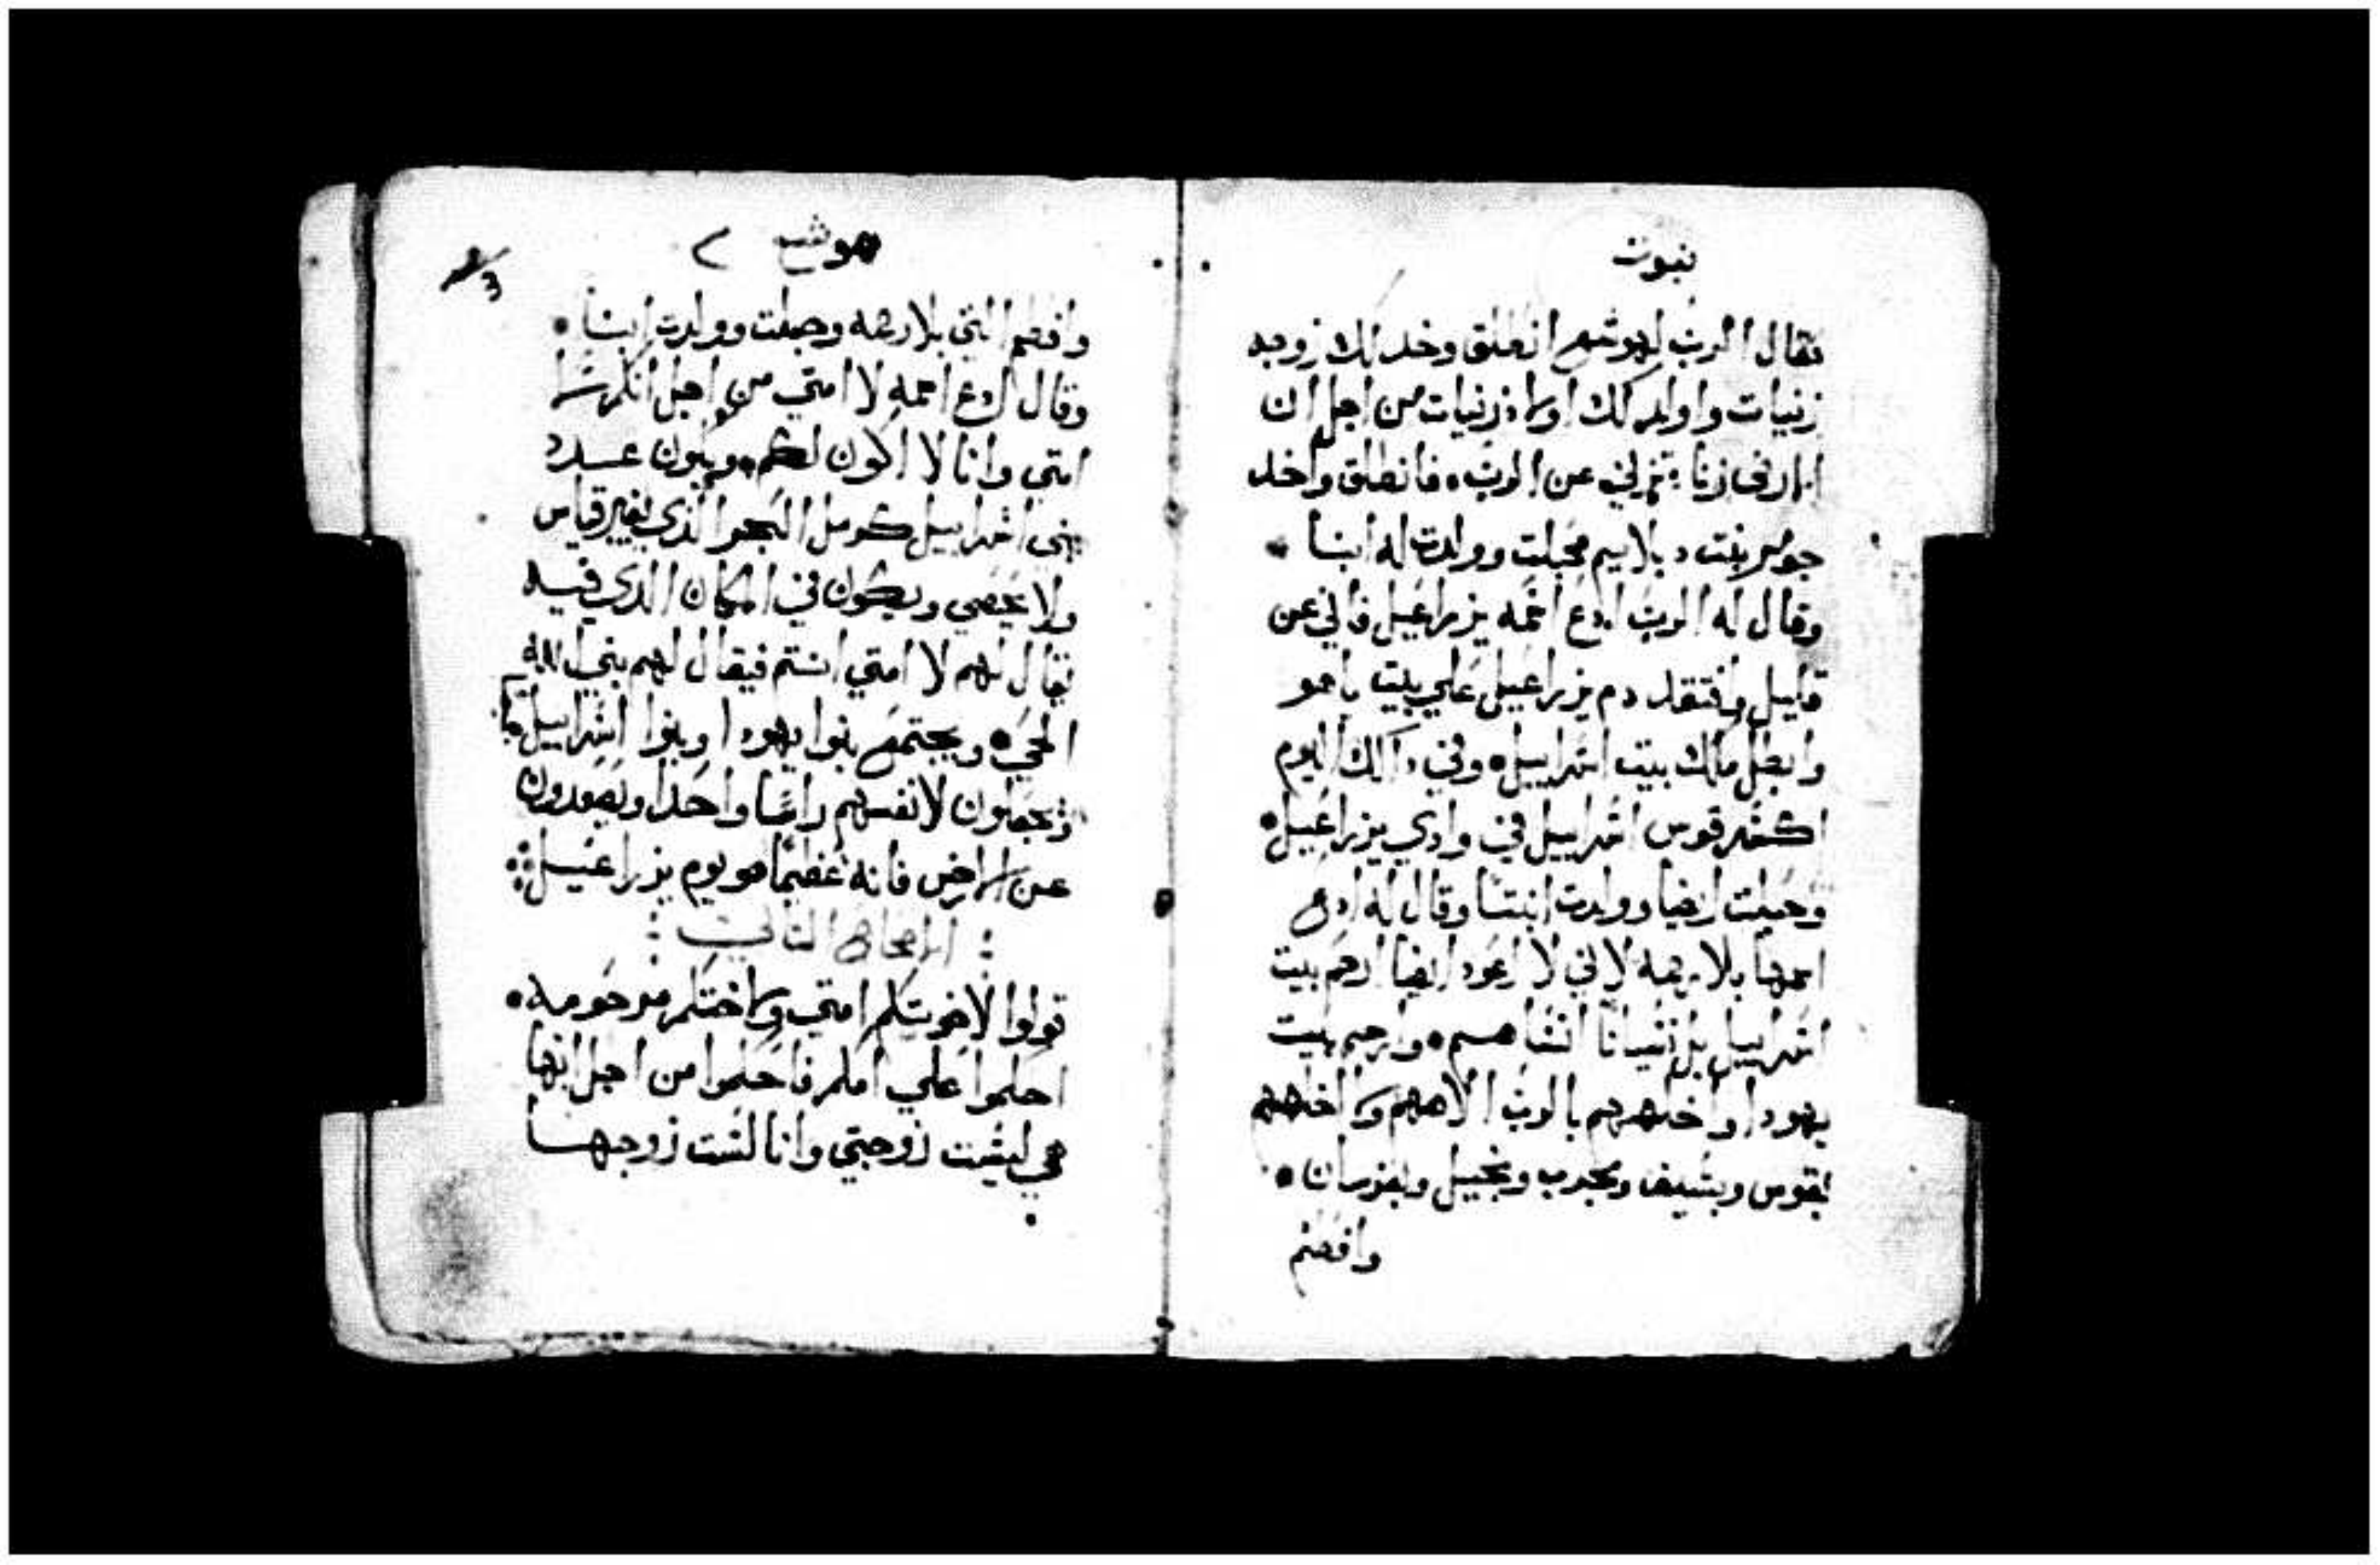 نبوت
فقال الرب لهوشع انطلق وخد لك زوجه
زنيات واولد لك اولاد زنيات من اجل ان
الارض زنا تزني عن الرب. فانطلق واخد
جومر بنت دبلاييم فحبلت وولدت له ابنا.
وقال له الرب ادع اسمه يزراعيل فاني عن
قليل وافتقد دم يزراعيل علي بيت ياهو
وابطل ملك بيت اسراييل. وفي دالك اليوم
اكسر قوس اسراييل في وادي يزراعيل.
وحبلت ايضا وولدت ابنتا وقال له ادع
اسمها بلا رحمه لاني لا اعود ايضا ارحم بيت
اسراييل بل نسيانا انساهم. وارحم بيت
يهودا واخلصهم بالرب الاههم ولا اخلصهم
بقوس وبسيف وبحرب وبخيل وبفرسان.
وافطم
هوشع ٢
وافطم التي بلا رحمه وحبلت وولدت ابنا.
وقال ادع اسمه لا امتي من اجل انكم لستم
امتي وانا لا اكون لكم. ويكون عدد
بني اسراييل كرمل البحر الذي بغير قياس
ولا يحصي ويكون في المكان الذي فيه
يقال لهم لا امتي انتم فيقال لهم بني الله
الحي. ويجتمع بنوا يهودا وبنوا اسراييل معا
ويجعلون لانفسهم راسا واحدا ويصعدون
عن الارض فانه عظيما هو يوم يزراعيل
الاصحاح الثاني
قولوا لاخوتكم امتي ولاختكم مرحومه.
احكموا علي امكم فاحكموا من اجل انها
هي ليست زوجتي وانا لست زوجها